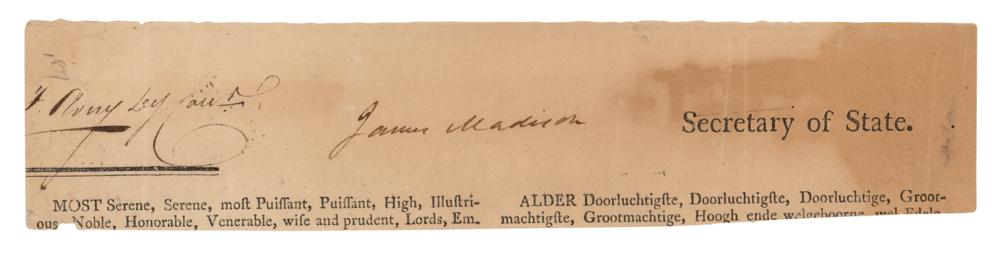 Avery
James Madison
Secretary of State.
MOST Serene, Serene, moſt Puiſſant, Puiſſant, High, Illuſtri-
ous Noble, Honorable, Venerable, wiſe and prudent, Lords, Em-
ALDER Doorluchtigſte, Doorluchtigſte, Doorluchtige, Groot-
machtigſte, Grootmachtige, Hoogh ende welgeboorne, wel Edele